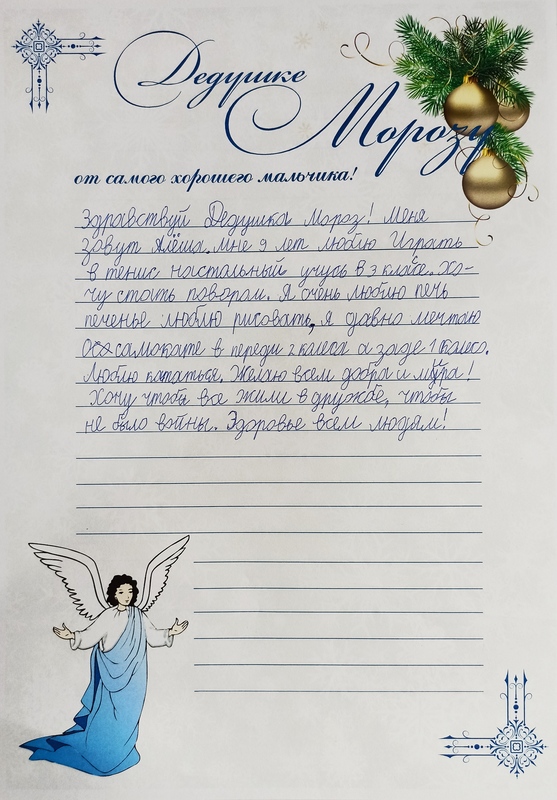 Дедушке
Морозу
от самого хорошего мальчика!
Здравствуй Дедушка Мороз! Меня
зовут Алёша. Мне 9 лет люблю Играть
в тенис настольный учусь в 3 класе. Хо-
чу стать поваром. Я очень люблю печь
печенье люблю рисовать, я давно мечтаю
самокате в переди 2 калеса а заде 1 калесо.
Люблю кататься. Желаю всем добра и мира!
Хочу чтобы все жили в дружбе, чтобы
не было войны. Здоровье всем людям!